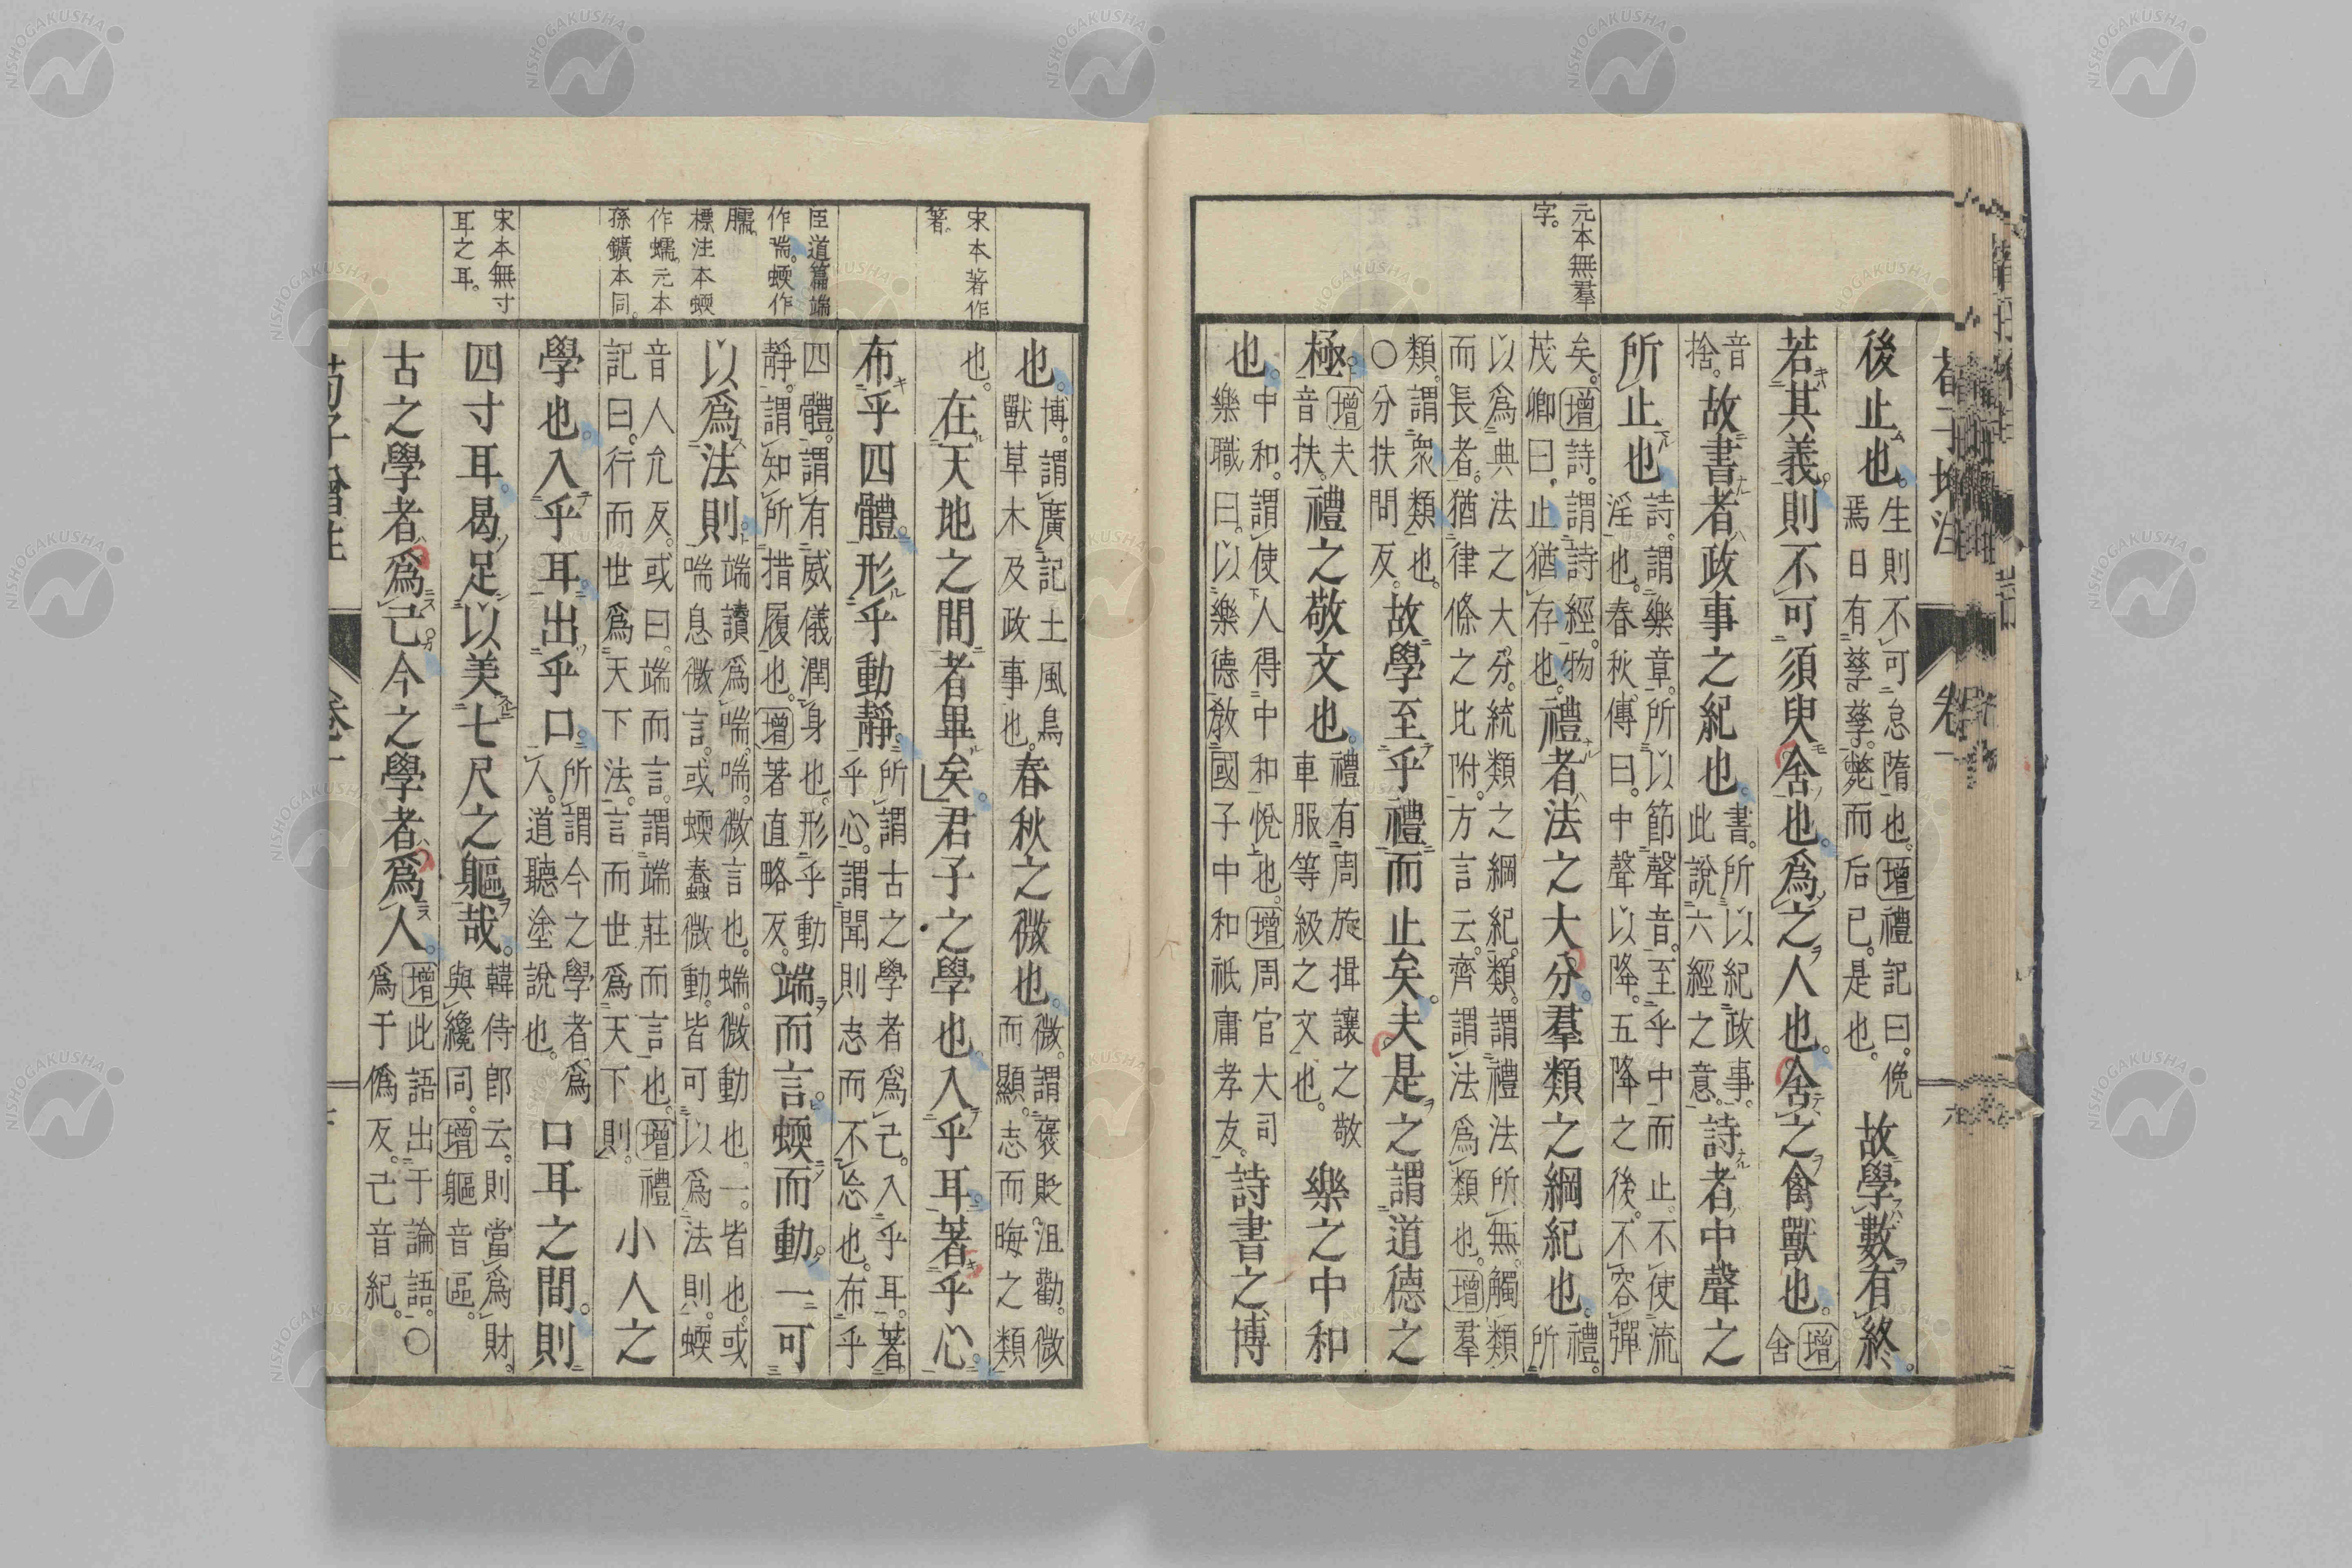 荀子增注
卷一
元本無羣
字。
後止也。生則不可怠隋也。增禮記曰。俛焉日有孳孳。斃而后已。是也。故學數有終。
若其義。則不可須臾舍也。爲之人也。舍之禽獸也。增舍
音捨。故書者政事之紀也。書。所以紀政事。此說六經之意。詩者中聲之
所止也。詩。謂樂章。所以節聲音。至乎中而止。不使流淫也。春秋傳曰。中聲以降。五降之後。不容彈
矣。增詩。謂詩經。物茂卿曰。止猶存也。禮者法之大分。羣類之綱紀也。禮。所
以爲典法之大分。統類之綱紀。類。謂禮法所無。觸類而長者。猶律條之比附。方言云。齊謂法爲類也。增羣
類。謂衆類也。○分扶問反。故學至乎禮而止矣。夫是之謂道德之
極。增夫音扶。禮之敬文也。禮有周旋揖讓之敬車服等級之文也。樂之中和
也。中和。謂使人得中和悅也。增周官大司樂職曰。以樂德敎國子中和祇庸孝友。詩書之博
宋本著作
箸。
臣道篇端
作喘。蝡作
臑。
標注本蝡
作蠕。元本
孫鑛本同。
宋本無寸
耳之耳。
也。博。謂廣記土風鳥獸草木及政事也。春秋之微也。微。謂褒貶沮勸。微而顯。志而晦之類
也。在天地之間者畢矣。君子之學也。入乎耳。著乎心。
布乎四體。形乎動靜。所謂古之學者爲己。入乎耳。著乎心。謂聞則志而不忘也。布乎
四體。謂有威儀潤身也。形乎動靜。謂知所措履也。增著直略反。端而言。蝡而動。一可
以爲法則。端讀爲喘。喘。微言也。蝡。微動也。一。皆也。或喘息微言。或蝡蠢微動。皆可以爲法則。蝡
音人允反。或曰。端而言。謂端莊而言也。增禮記曰。行而世爲天下法。言而世爲天下則。小人之
學也。入乎耳。出乎口。所謂今之學者爲人。道聽塗說也。口耳之間。則
四寸耳。曷足以美七尺之軀哉。韓侍郎云。則當爲財。與纔同。增軀音區。
古之學者爲己。今之學者爲人。增此語出于論語。○爲于僞反。己音紀。